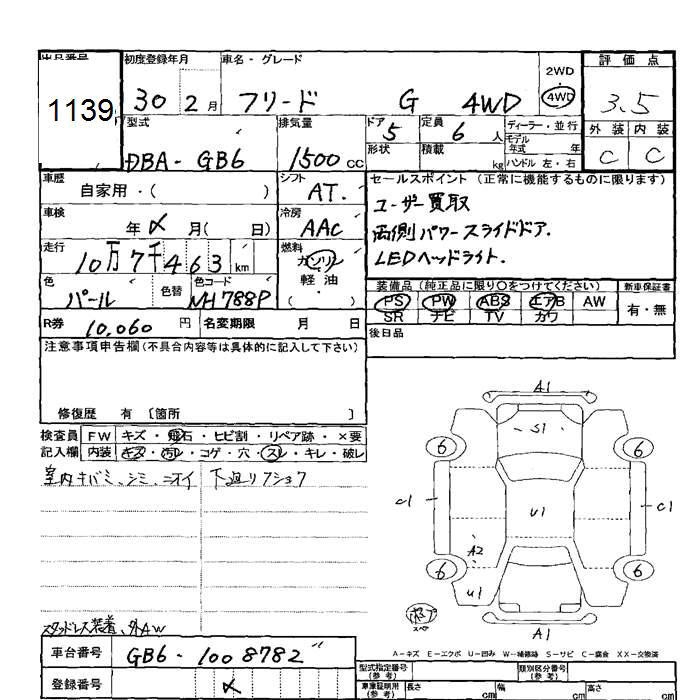 1139
初度登録年月 車名・グレード 2WD 評価点
30 2月 フリード G 4WD 4WD 3.5
型式 排気量 ドア 5 定員 6人 ディーラー・並行 外装 内装
DBA-GB6 1500cc 形状 積載 kg モデル年式 年 ハンドル 左・右 C C
車歴 自家用・( ) シフト AT. セールスポイント (正常に機能するものに限ります)
車検 年 月( 日) 冷房 AAC ユーザー買取
両側パワースライドドア.
走行 10万7千463km 燃料 ガソリン LEDヘッドライト.
軽油
色 パール 色替 色コード NH788P 装備品 (純正品に限り○をつけてください) 新車保証書
PS PW ABS エアB AW 有・無
R券 10,060円 名変期限 月 日 SR ナビ TV カワ
後日品
注意事項申告欄(不具合内容等は具体的に記入して下さい)
修復歴 有 〔箇所 〕
検査員 FW キズ・飛石・ヒビ割・リペア跡・×要
記入欄 内装 キズ・汚れ・コゲ・穴・スレ・キレ・破レ
室内キバミ、シミ、ニオイ 下廻りフショク
A1
S1
6 6
C1 U1 C1
A2
6 6
U1
A1
スタッドレス装着、外AW
A-キズ E-エクボ U-凹み W-補修跡 S-サビ C-腐食 XX-交換済
車台番号 GB6-1008782
型式指定番号(参考) 類別区分番号(参考)
登録番号
車庫証明用(参考) 長さ cm 幅 cm 高さ cm